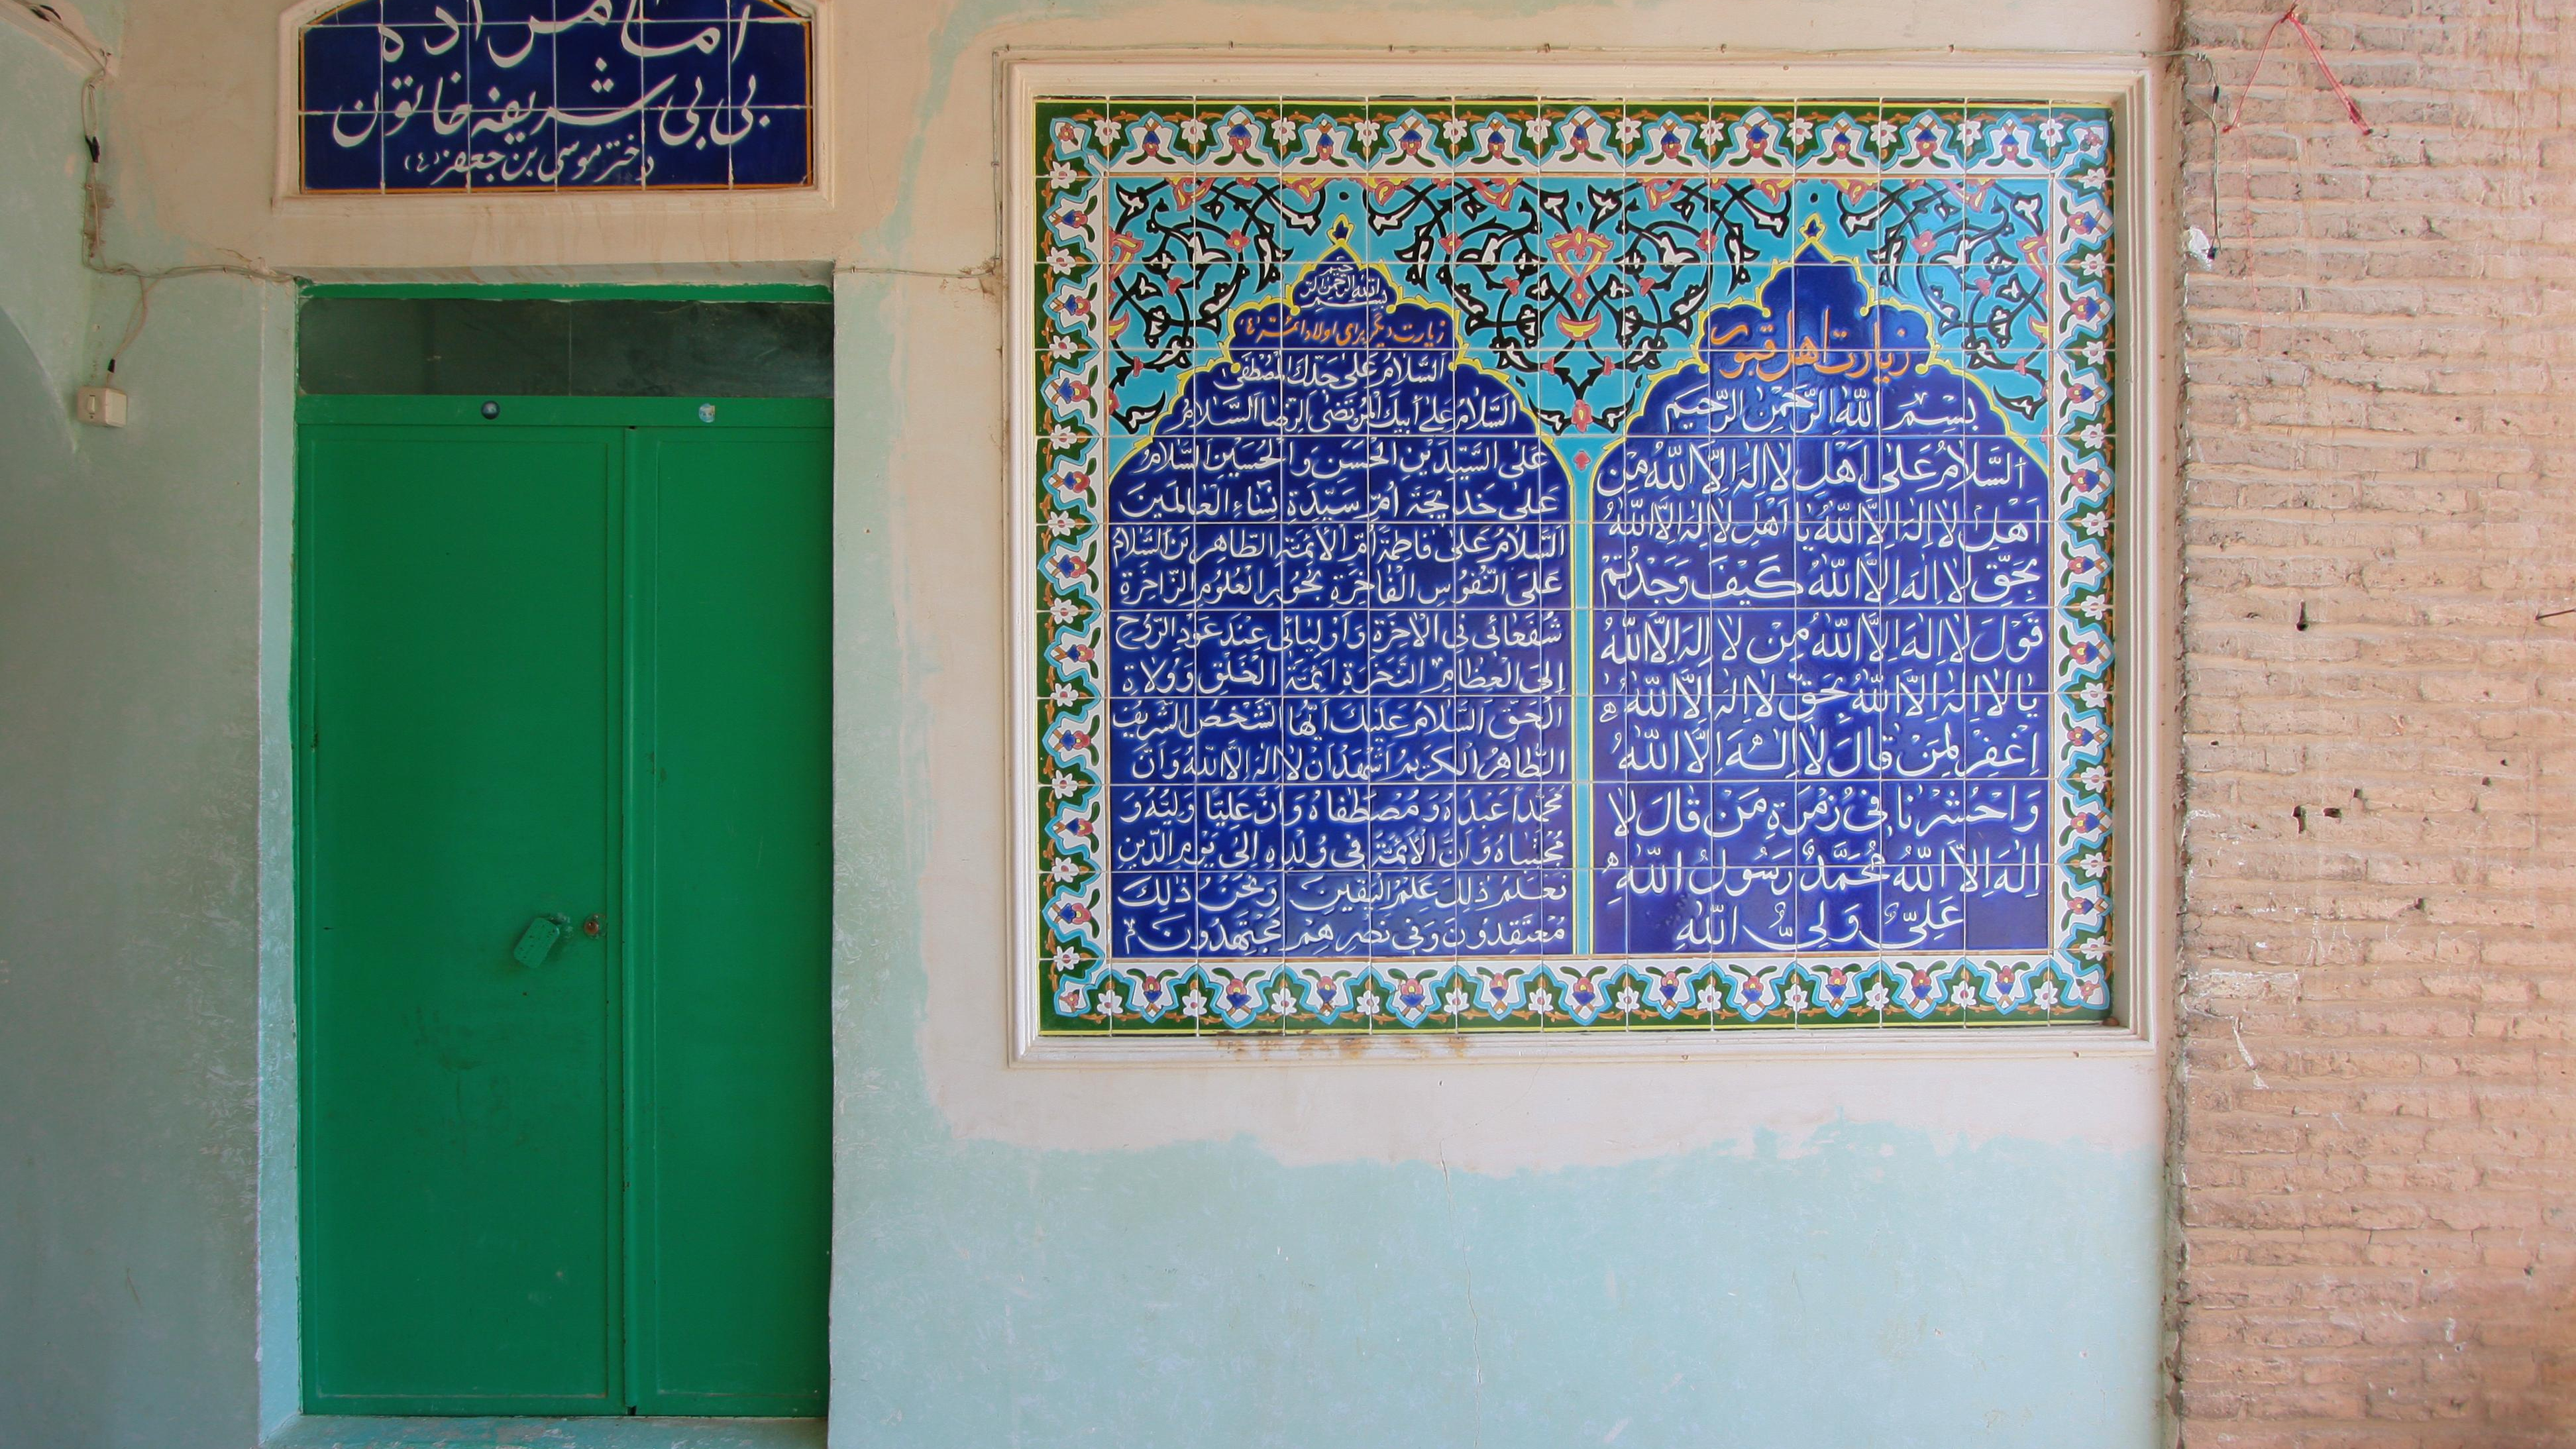 امامزاده
بی بی شریفه خاتون
دختر موسی بن جعفر (ع)
زیارت اهل قبور
بِسْمِ اللّٰهِ الرَّحْمٰنِ الرَّحیمِ
اَلسَّلامُ عَلیٰ اَهْلِ لا اِلٰهَ اِلَّا اللّٰهُ مِنْ
اَهْلِ لا اِلٰهَ اِلَّا اللّٰهُ یا اَهْلِ لا اِلٰهَ اِلَّا اللّٰهُ
بِحَقِّ لا اِلٰهَ اِلَّا اللّٰهُ کَیْفَ وَجَدْتُمْ
قَوْلَ لا اِلٰهَ اِلَّا اللّٰهُ مِنْ لا اِلٰهَ اِلَّا اللّٰهُ
یا لا اِلٰهَ اِلَّا اللّٰهُ بِحَقِّ لا اِلٰهَ اِلَّا اللّٰهُ
اِغْفِرْ لِمَنْ قالَ لا اِلٰهَ اِلَّا اللّٰهُ
وَاحْشُرْنا فی زُمْرَةِ مَنْ قالَ لا
اِلٰهَ اِلَّا اللّٰهُ مُحَمَّدٌ رَسُولُ اللّٰهِ
عَلِیٌّ وَلِیُّ اللّٰهِ
بسم الله الرحمن الرحیم
زیارت دیگر برای اولاد ائمّه ع
اَلسَّلامُ عَلیٰ جَدِّكَ الْمُصْطَفیٰ
اَلسَّلامُ عَلیٰ اَبیكَ الْمُرْتَضَی الرِّضا اَلسَّلامُ
عَلَی السَّیِّدَیْنِ الْحَسَنِ وَالْحُسَیْنِ اَلسَّلامُ
عَلیٰ خَدیجَةَ اُمِّ سَیِّدَةِ نِساءِ الْعالَمینَ
اَلسَّلامُ عَلیٰ فاطِمَةَ اُمِّ الْاَئِمَّةِ الطّاهِرینَ اَلسَّلامُ
عَلَی النُّفُوسِ الْفاخِرَةِ بُحُورِ الْعُلُومِ الزّاخِرَةِ
شُفَعائی فِی الْاخِرَةِ وَاَوْلِیائی عِنْدَ عَوْدِ الرُّوحِ
اِلَی الْعِظامِ النَّخِرَةِ اَئِمَّةِ الْخَلْقِ وَوُلاةِ
الْحَقِّ اَلسَّلامُ عَلَیْكَ اَیُّهَا الشَّخْصُ الشَّریفُ
الطّاهِرُ الْکَریمُ اَشْهَدُ اَنْ لا اِلٰهَ اِلَّا اللّٰهُ وَاَنَّ
مُحَمَّداً عَبْدُهُ وَمُصْطَفاهُ وَاَنَّ عَلِیّاً وَلِیُّهُ وَ
مُجْتَباهُ وَاَنَّ الْاَئِمَّةَ فی وُلْدِهِ اِلیٰ یَوْمِ الدّینِ
نَعْلَمُ ذٰلِكَ عِلْمَ الْیَقینِ وَنَحْنُ ذٰلِكَ
مُعْتَقِدُونَ وَفی نَصْرِهِمْ مُجْتَهِدُونَ